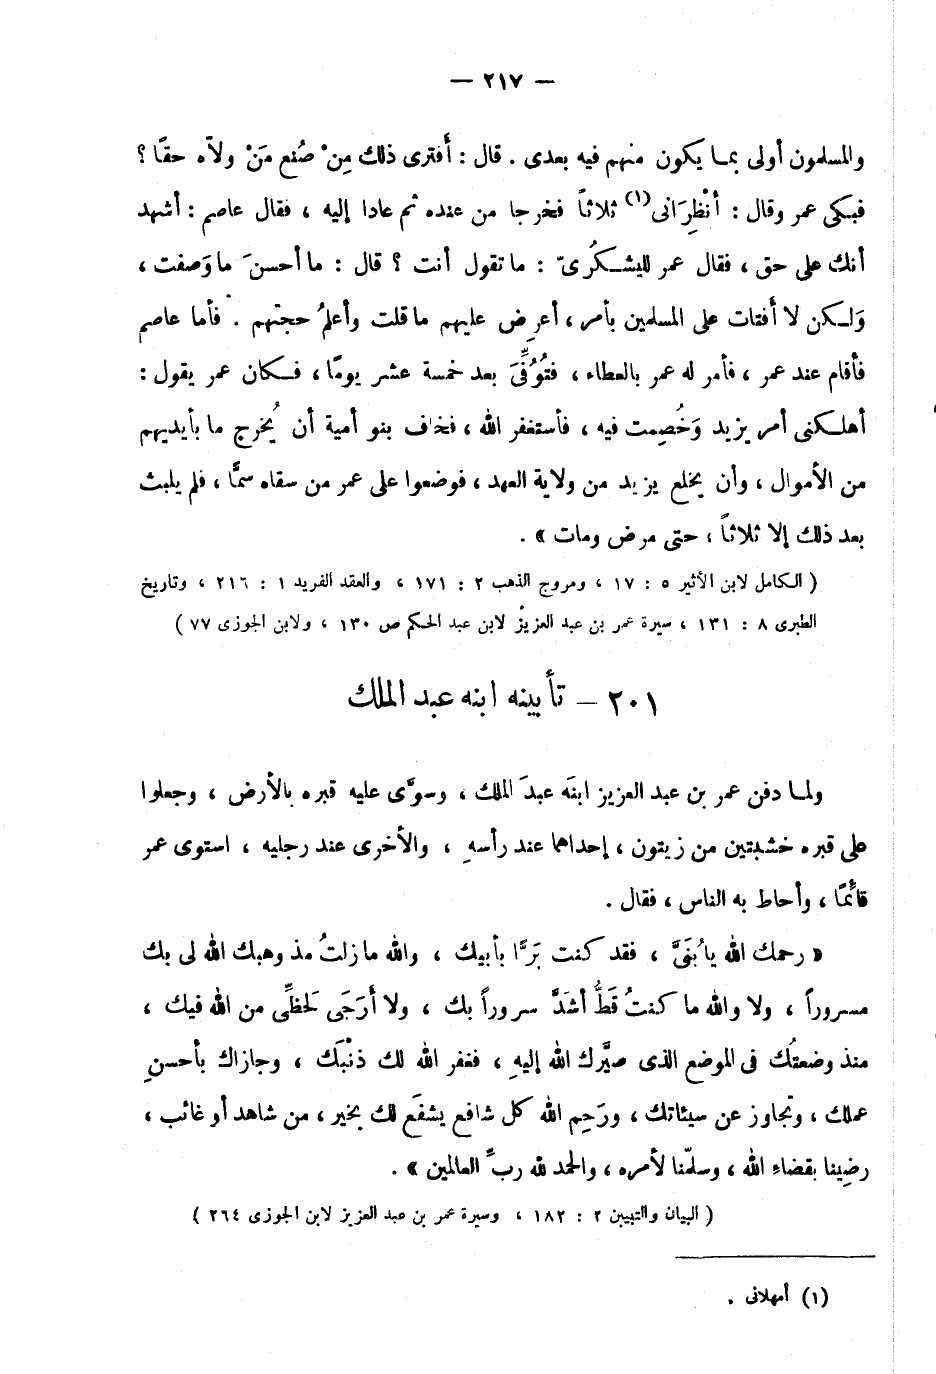 — ٢١٧ —
والمسلمون أولى بمـا يكون منهم فيه بعدى . قال : أَفترى ذلك مِنْ صُنع مَنْ ولاّه حقًا ؟
فبكى عمر وقال : أَنْظِرَانى(١) ثلاثاً فخرجا من عنده ثم عادا إليه ، فقال عاصم : أشهد
أنك على حق ، فقال عمر لليشـكُرىّ : ما تقول أنت ؟ قال : ما أحسنَ ما وَصفت ،
وَلـكن لا أَفتات على المسلمين بأمر ، أعرِض عليهم ما قلت وأعلمُ حجتهم . فأما عاصم
فأقام عند عمر ، فأمر له عمر بالعطاء ، فتُوُفِّىَ بعد خمسة عشر يومًا ، فـكان عمر يقول :
أهلـكنى أمر يزيد وَخُصِمت فيه ، فأستغفر الله ، فخاف بنو أمية أن يُخرج ما بأيديهم
من الأموال ، وأن يخلع يزيد من ولاية العهد ، فوضعوا على عمر من سقاه سمًّا ، فلم يلبث
بعد ذلك إلا ثلاثاً ، حتى مرض ومات » .
( الـكامل لابن الأثير ٥ : ١٧ ، ومروج الذهب ٢ : ١٧١ ، والعقد الفريد ١ : ٢١٦ ، وتاريخ
الطبرى ٨ : ١٣١ ، سيرة عمر بن عبد العزيز لابن عبد الحكم ص ١٣٠ ، ولابن الجوزى ٧٧ )
٢٠١ – تأبينه ابنه عبد الملك
ولمـا دفن عمر بن عبد العزيز ابنَه عبدَ الملك ، وسوَّى عليه قبره بالأرض ، وجعلوا
على قبره خشبتين من زيتون ، إحداهما عند رأسهِ ، والأخرى عند رجليه ، استوى عمر
قائمًا ، وأحاط به الناس ، فقال .
« رحمك الله يا بُنَىَّ ، فقد كنت بَرًّا بأبيك ، والله ما زلتُ مذ وهبك الله لى بك
مسروراً ، ولا والله ما كنتُ قَطُّ أشَدَّ سروراً بك ، ولا أَرَجَى لحَظِّى من الله فيك ،
منذ وضعتُك فى الموضع الذى صيَّرك الله إليهِ ، فغفر الله لك ذنْبَك ، وجازاك بأحسنِ
عملك ، وتجاوز عن سيئاتك ، ورَحِم الله كل شافع يشفَع لك بخير ، من شاهد أو غائب ،
رضِينا بقضاءِ الله ، وسلمّنا لأمره ، والحمد لله ربِّ العالمين » .
( البيان والتبيين ٢ : ١٨٢ ، وسيرة عمر بن عبد العزيز لابن الجوزى ٢٦٤ )
(١) أمهلانى .